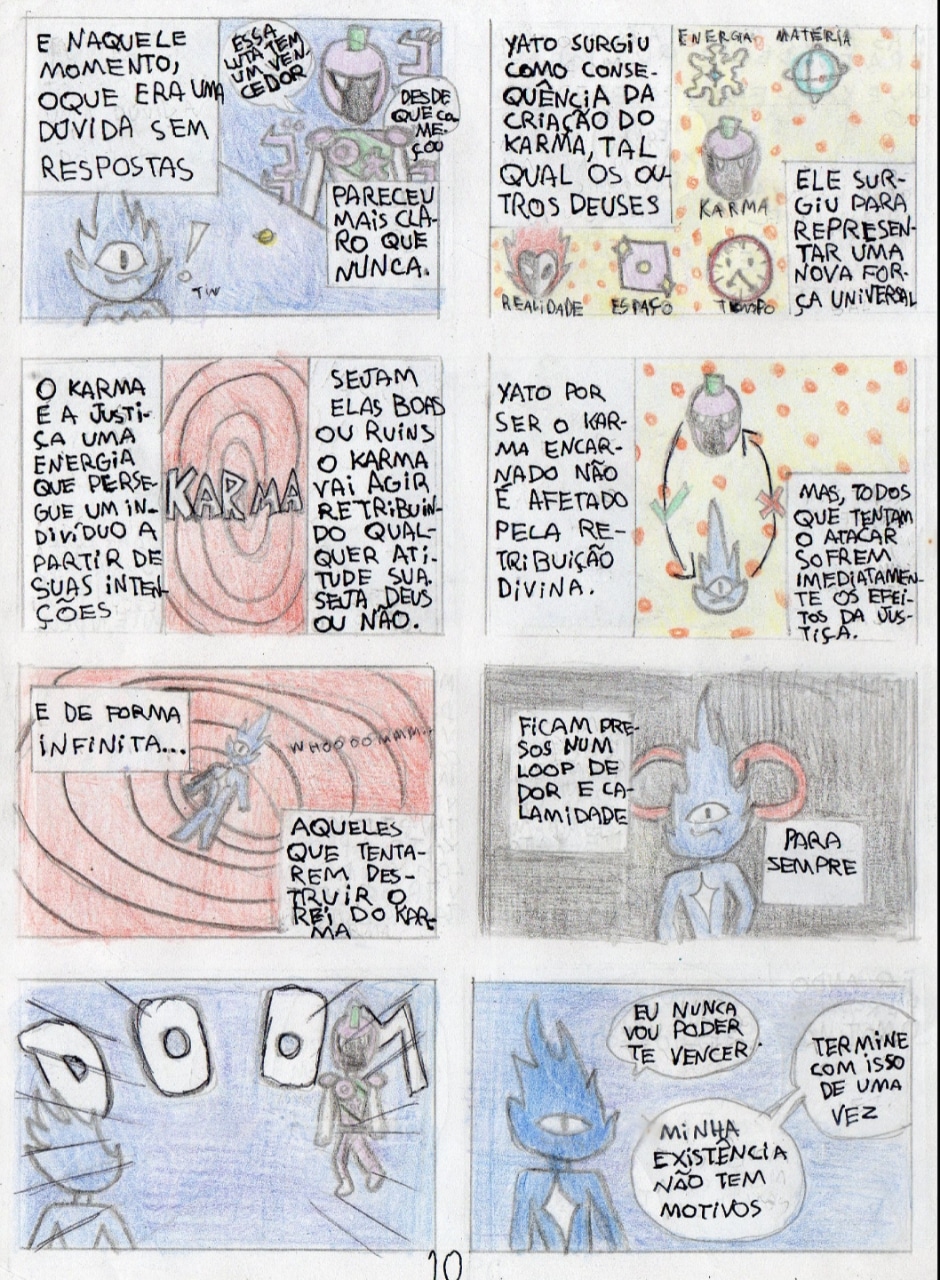 E NAQUELE
MOMENTO,
OQUE ERA UMA
DÚVIDA SEM
RESPOSTAS
ESSA
LUTA TEM
UM VEN-
CEDOR
DESDE
QUE CO-
ME-
ÇOO
PARECEU
MAIS CLA-
RO QUE
NUNCA.
!
TIN
YATO SURGIU
COMO CONSE-
QUÊNCIA DA
CRIAÇÃO DO
KARMA, TAL
QUAL OS OU-
TROS DEUSES
ENERGIA
MATÉRIA
KARMA
REALIDADE
ESPAÇO
TEMPO
ELE SUR-
GIU PARA
REPRESEN-
TAR UMA
NOVA FOR-
ÇA UNIVERSAL
O KARMA
É A JUSTI-
ÇA UMA
ENERGIA
QUE PERSE-
GUE UM IN-
DIVÍDUO A
PARTIR DE
SUAS INTEN-
ÇÕES
KARMA
SEJAM
ELAS BOAS
OU RUINS
O KARMA
VAI AGIR
RETRIBUIN-
DO QUAL-
QUER ATI-
TUDE SUA.
SEJA DEUS
OU NÃO.
YATO POR
SER O KAR-
MA ENCAR-
NADO NÃO
É AFETADO
PELA RE-
TRIBUIÇÃO
DIVINA.
MAS, TODOS
QUE TENTAM
O ATACAR
SOFREM
IMEDIATAMEN-
TE OS EFEI-
TOS DA JUS-
TIÇA.
E DE FORMA
INFINITA...
WHOOOOMMM...
AQUELES
QUE TENTA-
REM DES-
TRUIR O
REI DO KAR-
MA
FICAM PRE-
SOS NUM
LOOP DE
DOR E CA-
LAMIDADE
PARA
SEMPRE
DOOM
EU NUNCA
VOU PODER
TE VENCER.
MINHA
EXISTÊNCIA
NÃO TEM
MOTIVOS
TERMINE
COM ISSO
DE UMA
VEZ
10